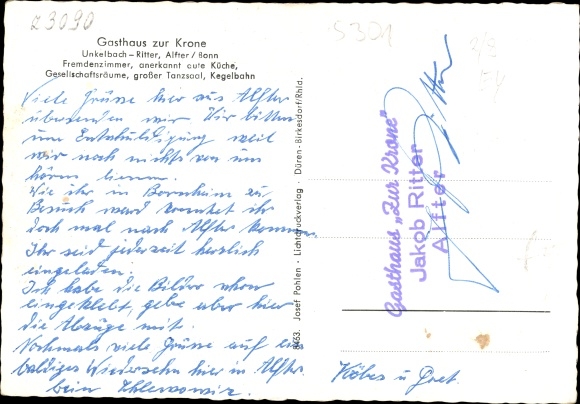 z 3090
S301
Gasthaus zur Krone
Unkelbach-Ritter, Alfter/Bonn
Fremdenzimmer, anerkannt gute Küche,
Gesellschaftsräume, großer Tanzsaal, Kegelbahn
Viele Grüsse hier aus Alfter
übersenden wir. Wir bitten
um Entschuldigung weil
wir noch nichts von uns
hören liesen.
Wie ihr in Bornheim zu
Besuch ward konntet ihr
doch mal nach Alfter kommen.
Ihr seid jederzeit herzlich
eingeladen.
Ich habe die Bilder schon
eingeklebt, gebe aber hier
die Abzüge mit.
Nochmals viele Grüsse auf ein
baldiges Wiedersehn hier in Alfter
beim
8463. Josef Pohlen · Lichtdruckverlag · Düren-Birkesdorf/Rhld.
Gasthaus „Zur Krone"
Jakob Ritter
Alfter
Köbes u